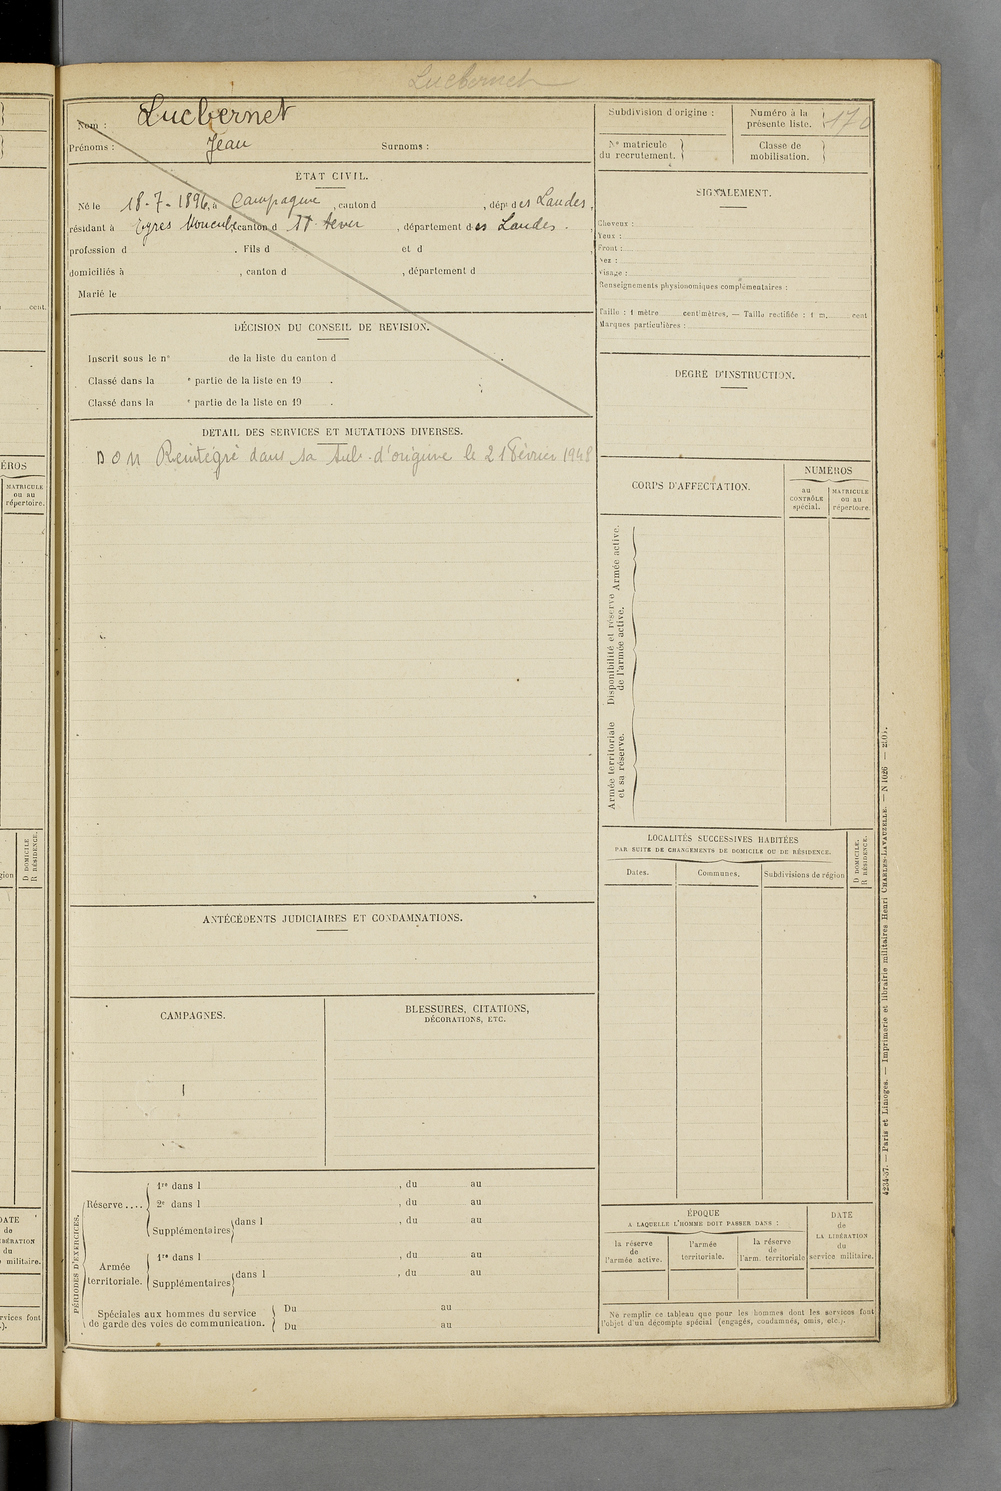 Lucbernet
Nom : Lucbernet
Prénoms : Jean Surnoms :
ÉTAT CIVIL.
Né le 18-7-1896, à Campagne, canton d , dépt des Landes,
résidant à Eyres Moncube canton d St Sever, département des Landes.
profession d . Fils d et d
domiciliés à , canton d , département d
Marié le
DÉCISION DU CONSEIL DE REVISION.
Inscrit sous le n° de la liste du canton d
Classé dans la e partie de la liste en 19 .
Classé dans la e partie de la liste en 19 .
DÉTAIL DES SERVICES ET MUTATIONS DIVERSES.
Réintégré dans sa Sub. d'origine le 21 Février 1948
ANTÉCÉDENTS JUDICIAIRES ET CONDAMNATIONS.
CAMPAGNES.
BLESSURES, CITATIONS,
DÉCORATIONS, ETC.
PÉRIODES D'EXERCICES.
Réserve....
1re dans l , du au
2e dans l , du au
Supplémentaires dans l , du au
Armée
territoriale.
1re dans l , du au
Supplémentaires dans l , du au
Spéciales aux hommes du service
de garde des voies de communication.
Du au
Du au
Subdivision d'origine :
Numéro à la
présente liste. 170
N° matricule
du recrutement.
Classe de
mobilisation.
SIGNALEMENT.
Cheveux :
Yeux :
Front :
Nez :
Visage :
Renseignements physionomiques complémentaires :
Taille : 1 mètre centimètres, — Taille rectifiée : 1 m, cent
Marques particulières :
DEGRÉ D'INSTRUCTION.
CORPS D'AFFECTATION.
NUMÉROS
au
CONTRÔLE
spécial.
MATRICULE
ou au
répertoire.
Armée active.
Disponibilité et réserve
de l'armée active.
Armée territoriale
et sa réserve.
LOCALITÉS SUCCESSIVES HABITÉES
PAR SUITE DE CHANGEMENTS DE DOMICILE OU DE RÉSIDENCE.
D DOMICILE.
R RÉSIDENCE.
Dates.
Communes,
Subdivisions de région
ÉPOQUE
A LAQUELLE L'HOMME DOIT PASSER DANS :
la réserve
de
l'armée active.
l'armée
territoriale.
la réserve
de
l'arm. territoriale
DATE
de
LA LIBÉRATION
du
service militaire.
Ne remplir ce tableau que pour les hommes dont les services font
l'objet d'un décompte spécial (engagés, condamnés, omis, etc.).
4234-37. — Paris et Limoges. — Imprimerie et librairie militaires Henri CHARLES-LAVAUZELLE. — N 1026
cent.
MATRICULE
ou au
répertoire.
D DOMICILE
R RÉSIDENCE.
de
du
militaire.